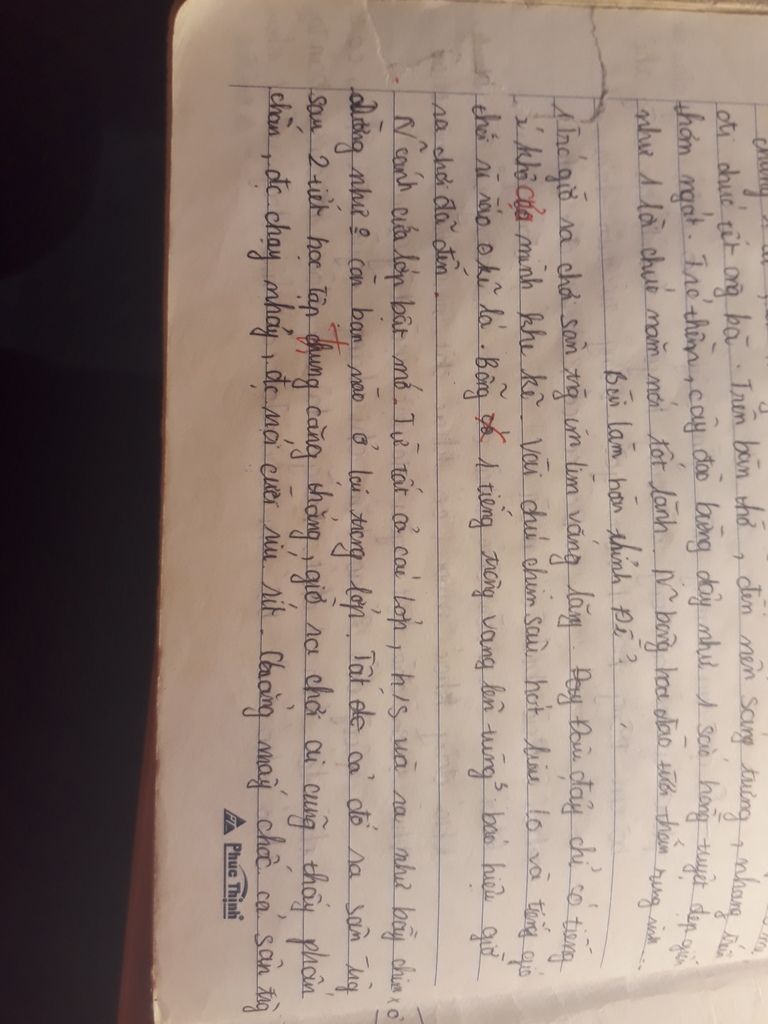 đi chúc tết ông bà. Trên bàn thờ, đèn nến sáng trưng, nhang
thơm ngát. Trc thềm, cây đào bừng dậy như 1 sáo hồng tuyệt đẹp
như 1 lời chúc năm mới tốt lành. N~ bông hoa đào tươi thắm rung rinh...
Bài làm hoàn chỉnh Đề 2
1 Trc giờ ra chơi sân trg im lìm vắng lặng. Đây đâu đây chỉ có tiếng
xì xồ của mình khe kẽ. Vài chú chim sâu hót líu lo và tiếng gió
thổi rì rào kẽ lá. Bỗng 1 tiếng trống vang lên tùng³ báo hiệu giờ
ra chơi đã đến.
N~ cánh cửa lớp bật mở. Từ tất cả các lớp, h/s ùa ra như bầy chim
dường như o còn bạn nào ở lại trong lớp. Tất cả đổ ra sân trg
sau 2 tiết học tập căng thẳng, giờ ra chơi ai cũng thấy phấn
chấn, đc chạy nhảy, đc nói cười ríu rít. Chẳng mấy chốc cả sân trg
Phúc Thịnh